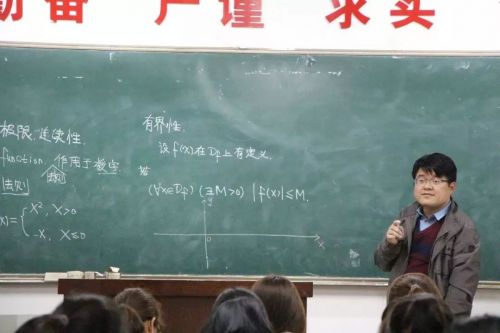 勤奋 严谨 求实
极限, 连续性.
function. 作用于数字
法则
法则
x)= { x², x>0
-x, x≤0
有界性.
设 f(x) 在 Df 上有定义.
若
(∀x∈Df) (∃M>0) |f(x)|≤M.
y
0
x